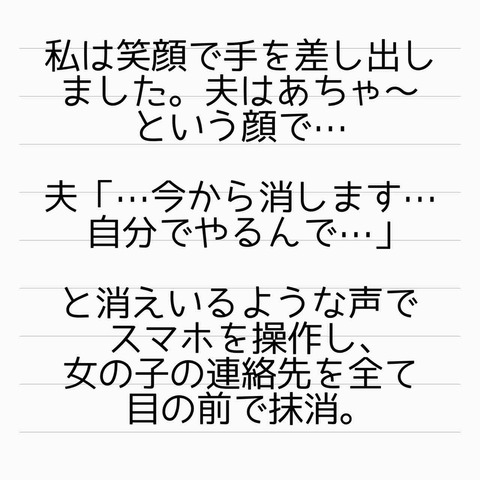 私は笑顔で手を差し出し
ました。夫はあちゃ〜
という顔で…
夫「…今から消します…
自分でやるんで…」
と消えいるような声で
スマホを操作し、
女の子の連絡先を全て
目の前で抹消。